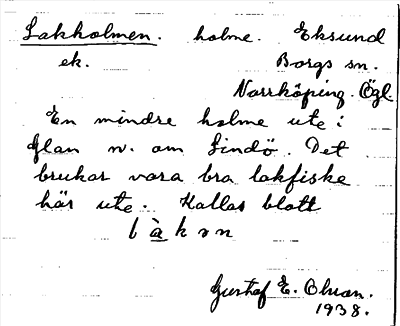 Lakholmen. holme. Eksund
ek. Borgs sn.
Norrköping. Ögl
En mindre holme ute i
Glan n. om Lindö. Det
brukar vara bra lakfiske
här ute. Kallas blott
làkən
Gustaf E. Ohman.
1938.